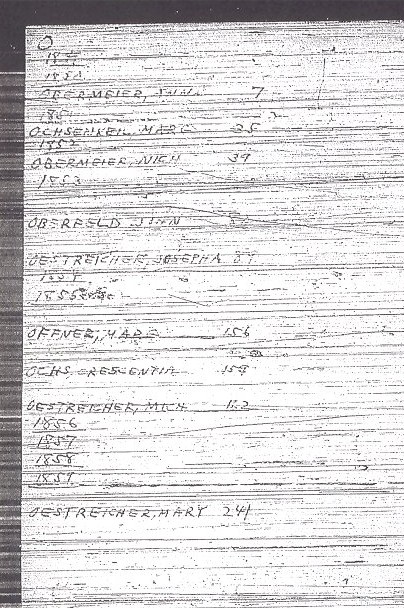 O
1849
1850
OBERMEIER, JOHN 7
1851
OCHSENKEIL, MARG 35
1852
OBERMEIER, MICH 39
1853
OBERFELD JOHN
OESTREICHER, JOSEPHA 89
1854
1855
OFFNER, MARG 156
OCHS CRESCENTIA 159
OESTREICHER, MICH
1856
1857
1858
1859
OESTREICHER, MARY 241